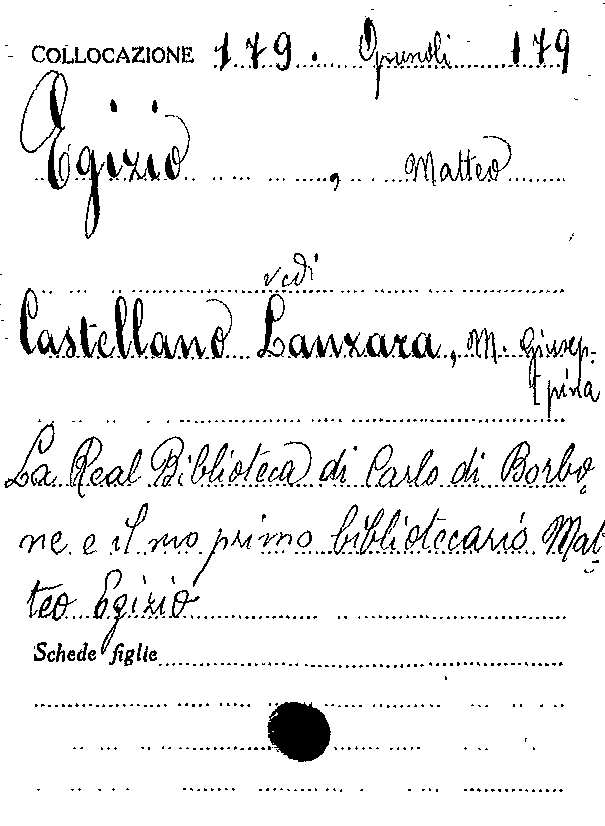 COLLOCAZIONE 179. Opuscoli 179
Egizio, Matteo
vedi
Castellano Lanzara, M. Giusep-
pina
La Real Biblioteca di Carlo di Borbo-
ne e il suo primo bibliotecario Mat-
teo Egizio
Schede figlie